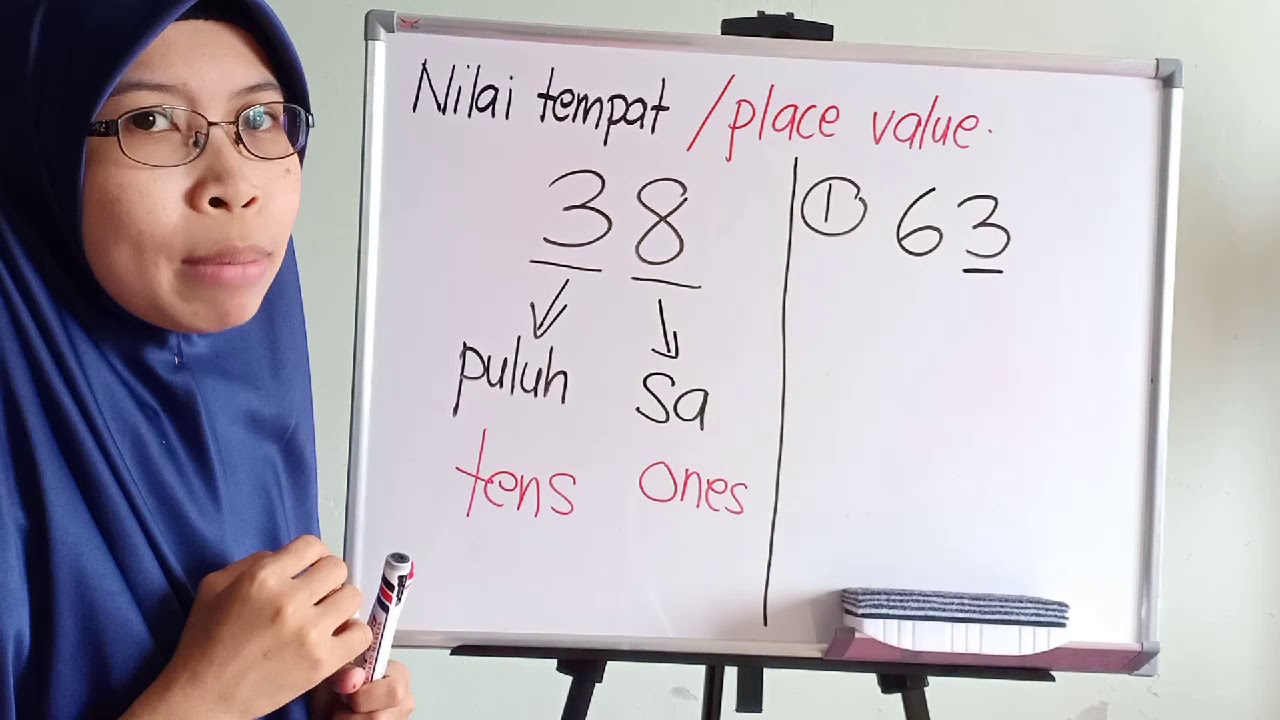 Nilai tempat / place value.
38
puluh sa
tens ones
① 63